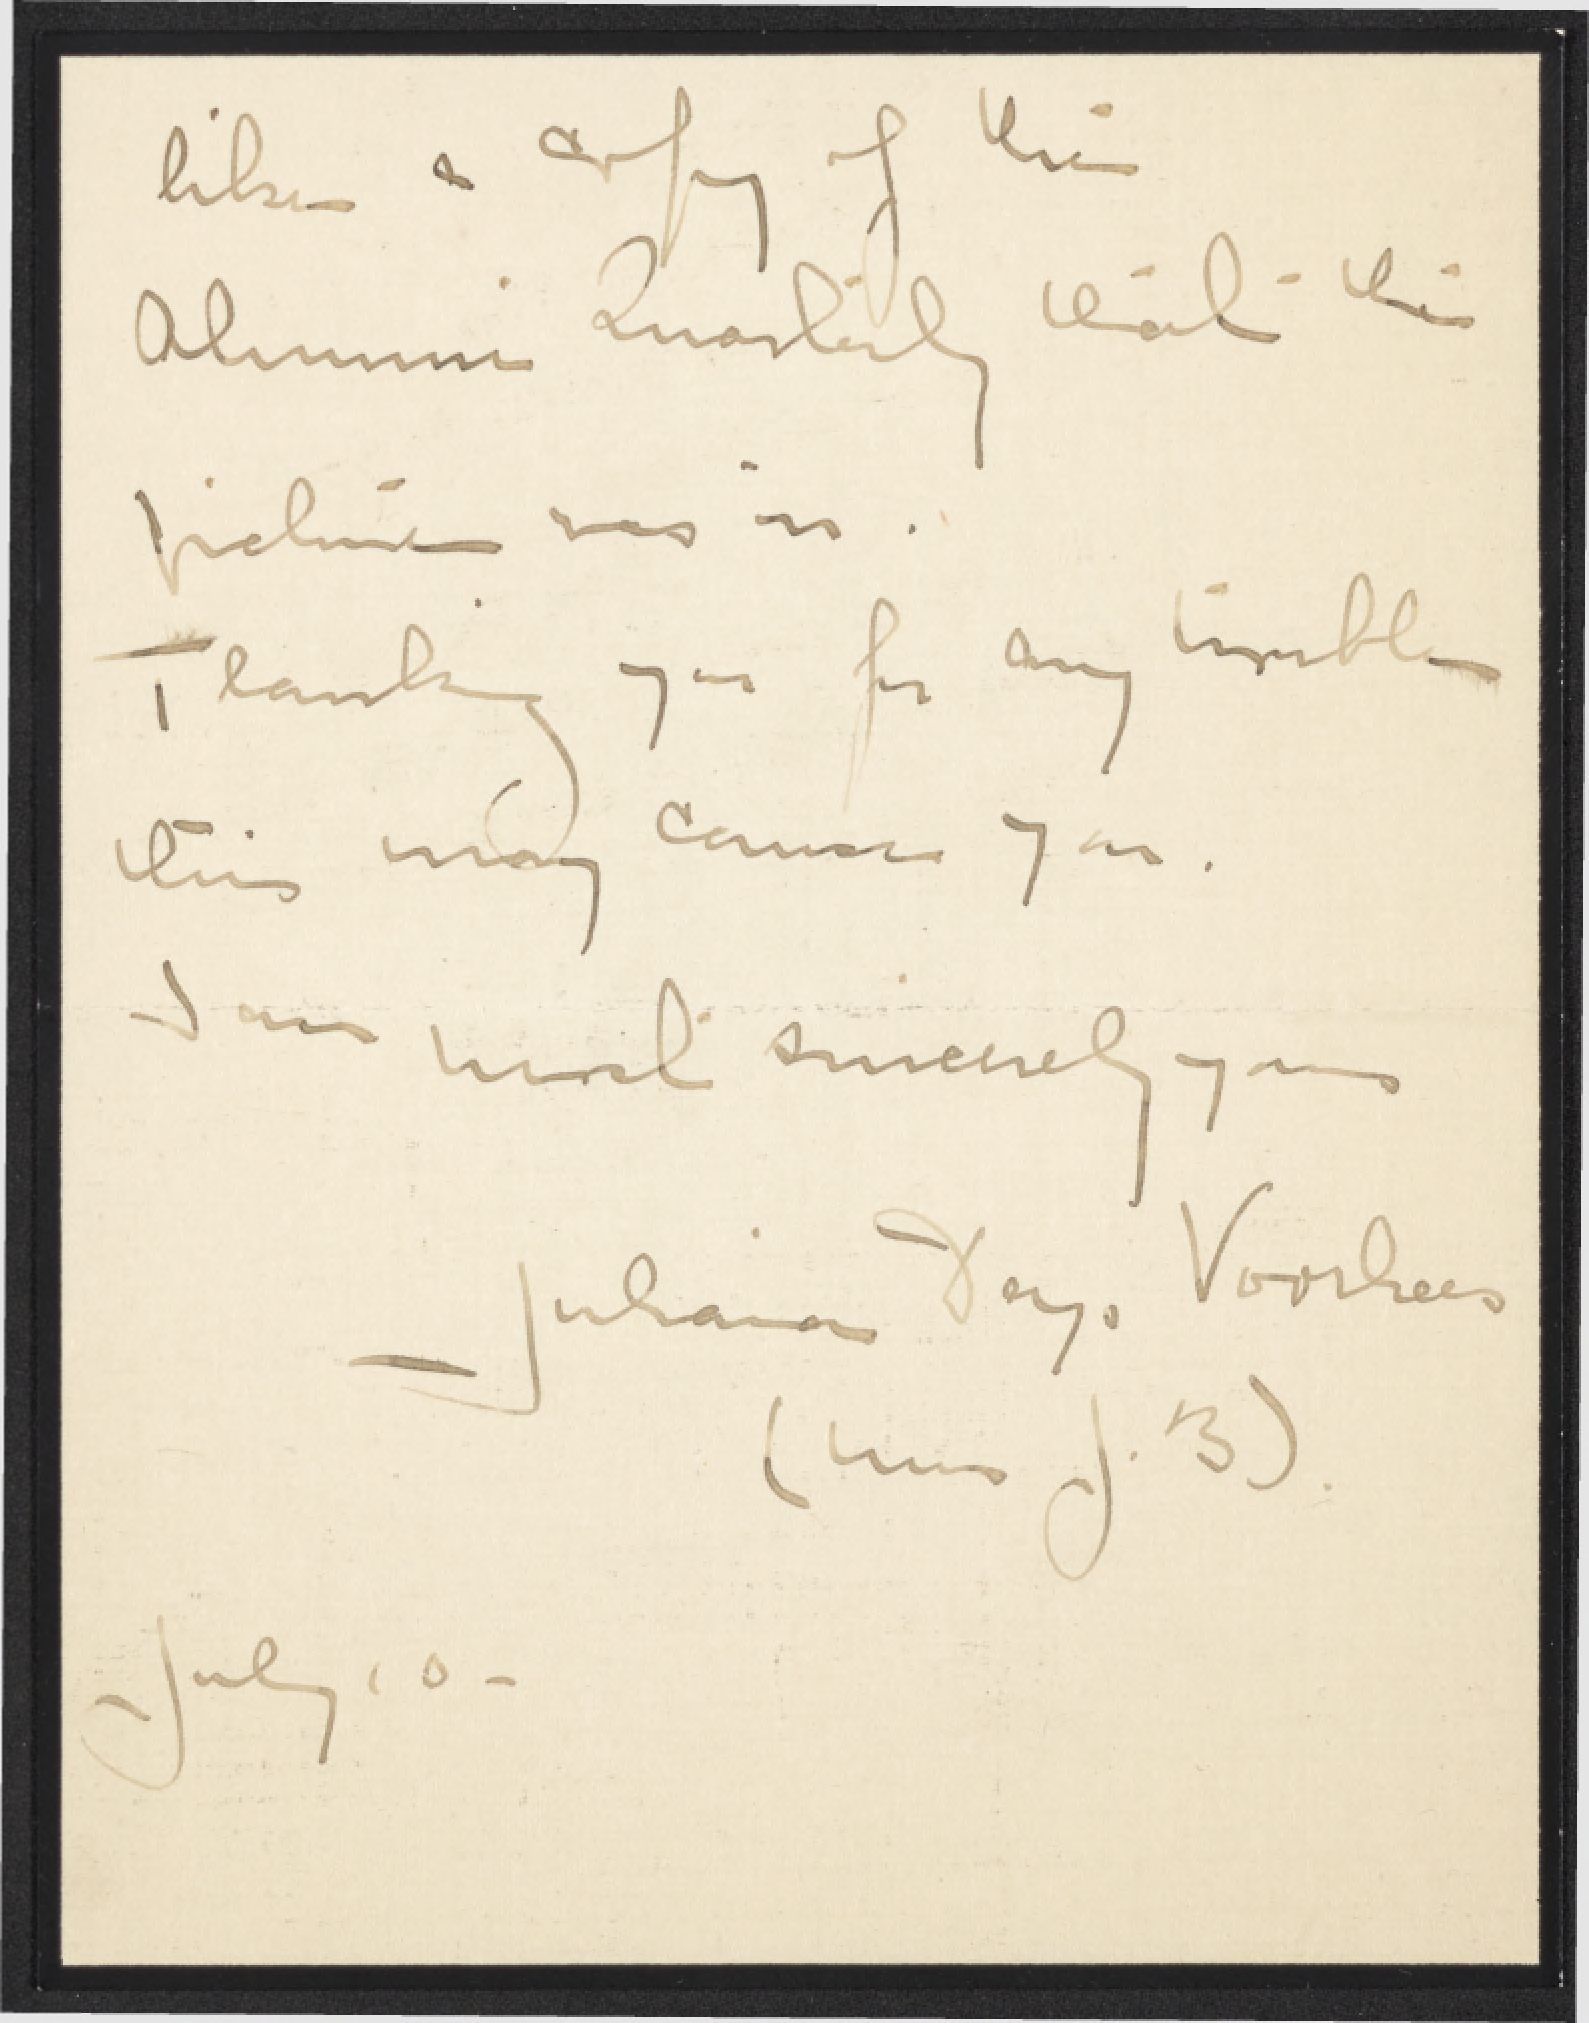 like a copy of the
Alumni Quarterly that the
picture was in.
Thanking you for any trouble
this may cause you.
I am most sincerely yours
Juliana Voorhees
(Mrs J. B).
July 10 -